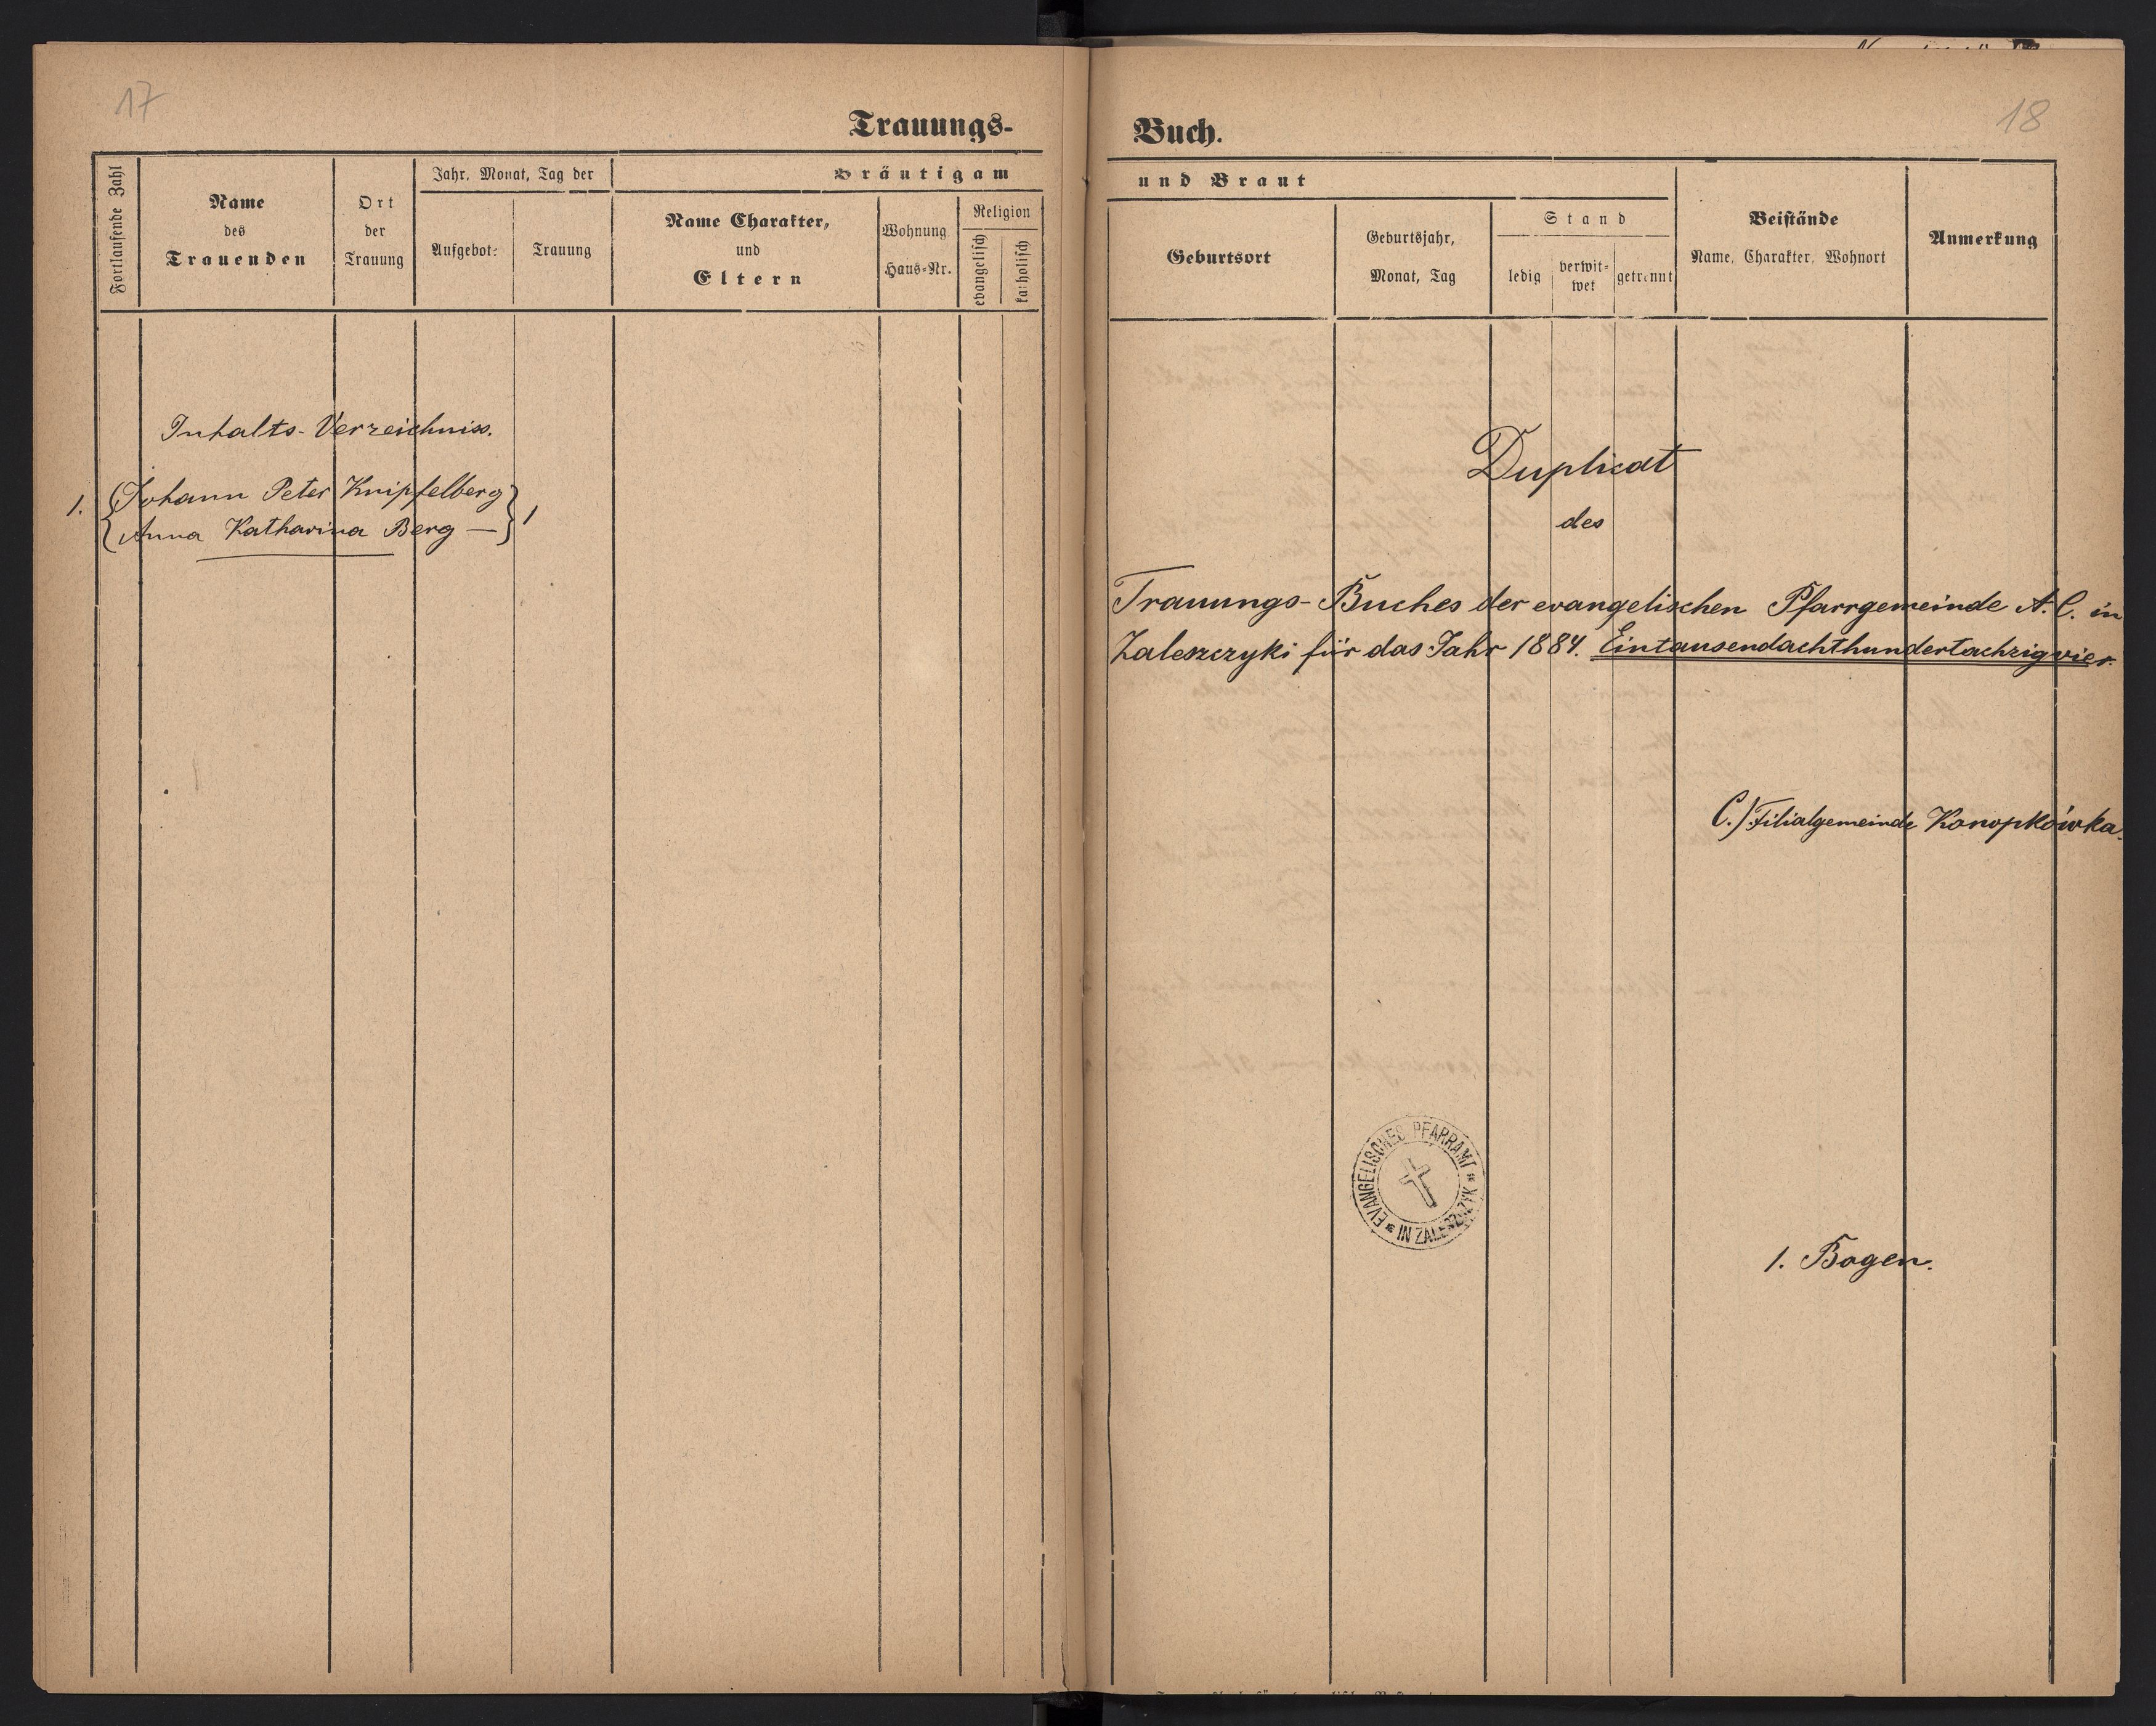 17
Trauungs-
Fortlaufende Zahl
Name
des
Trauenden
Ort
der
Trauung
Jahr, Monat, Tag der
Aufgebot-
Trauung
Bräutigam
Name Charakter,
und
Eltern
Wohnung
Haus-Nr.
Religion
evangelisch
katholisch
Inhalts-Verzeichniss.
1. {Johann Peter Knipfelberg} 1
{Anna Katharina Berg —}
18
Buch.
und Braut
Geburtsort
Geburtsjahr,
Monat, Tag
Stand
ledig
verwit-
wet
getrennt
Beistände
Name, Charakter, Wohnort
Anmerkung
Duplicat
des
Trauungs-Buches der evangelischen Pfarrgemeinde A. C. in
Zaleszczyki für das Jahr 1884. Eintausendachthundertachzigvier.
C.) Filialgemeinde Konopkówka.
* EVANGELISCHES PFARRAMT * IN ZALESZCZYK
1. Bogen.